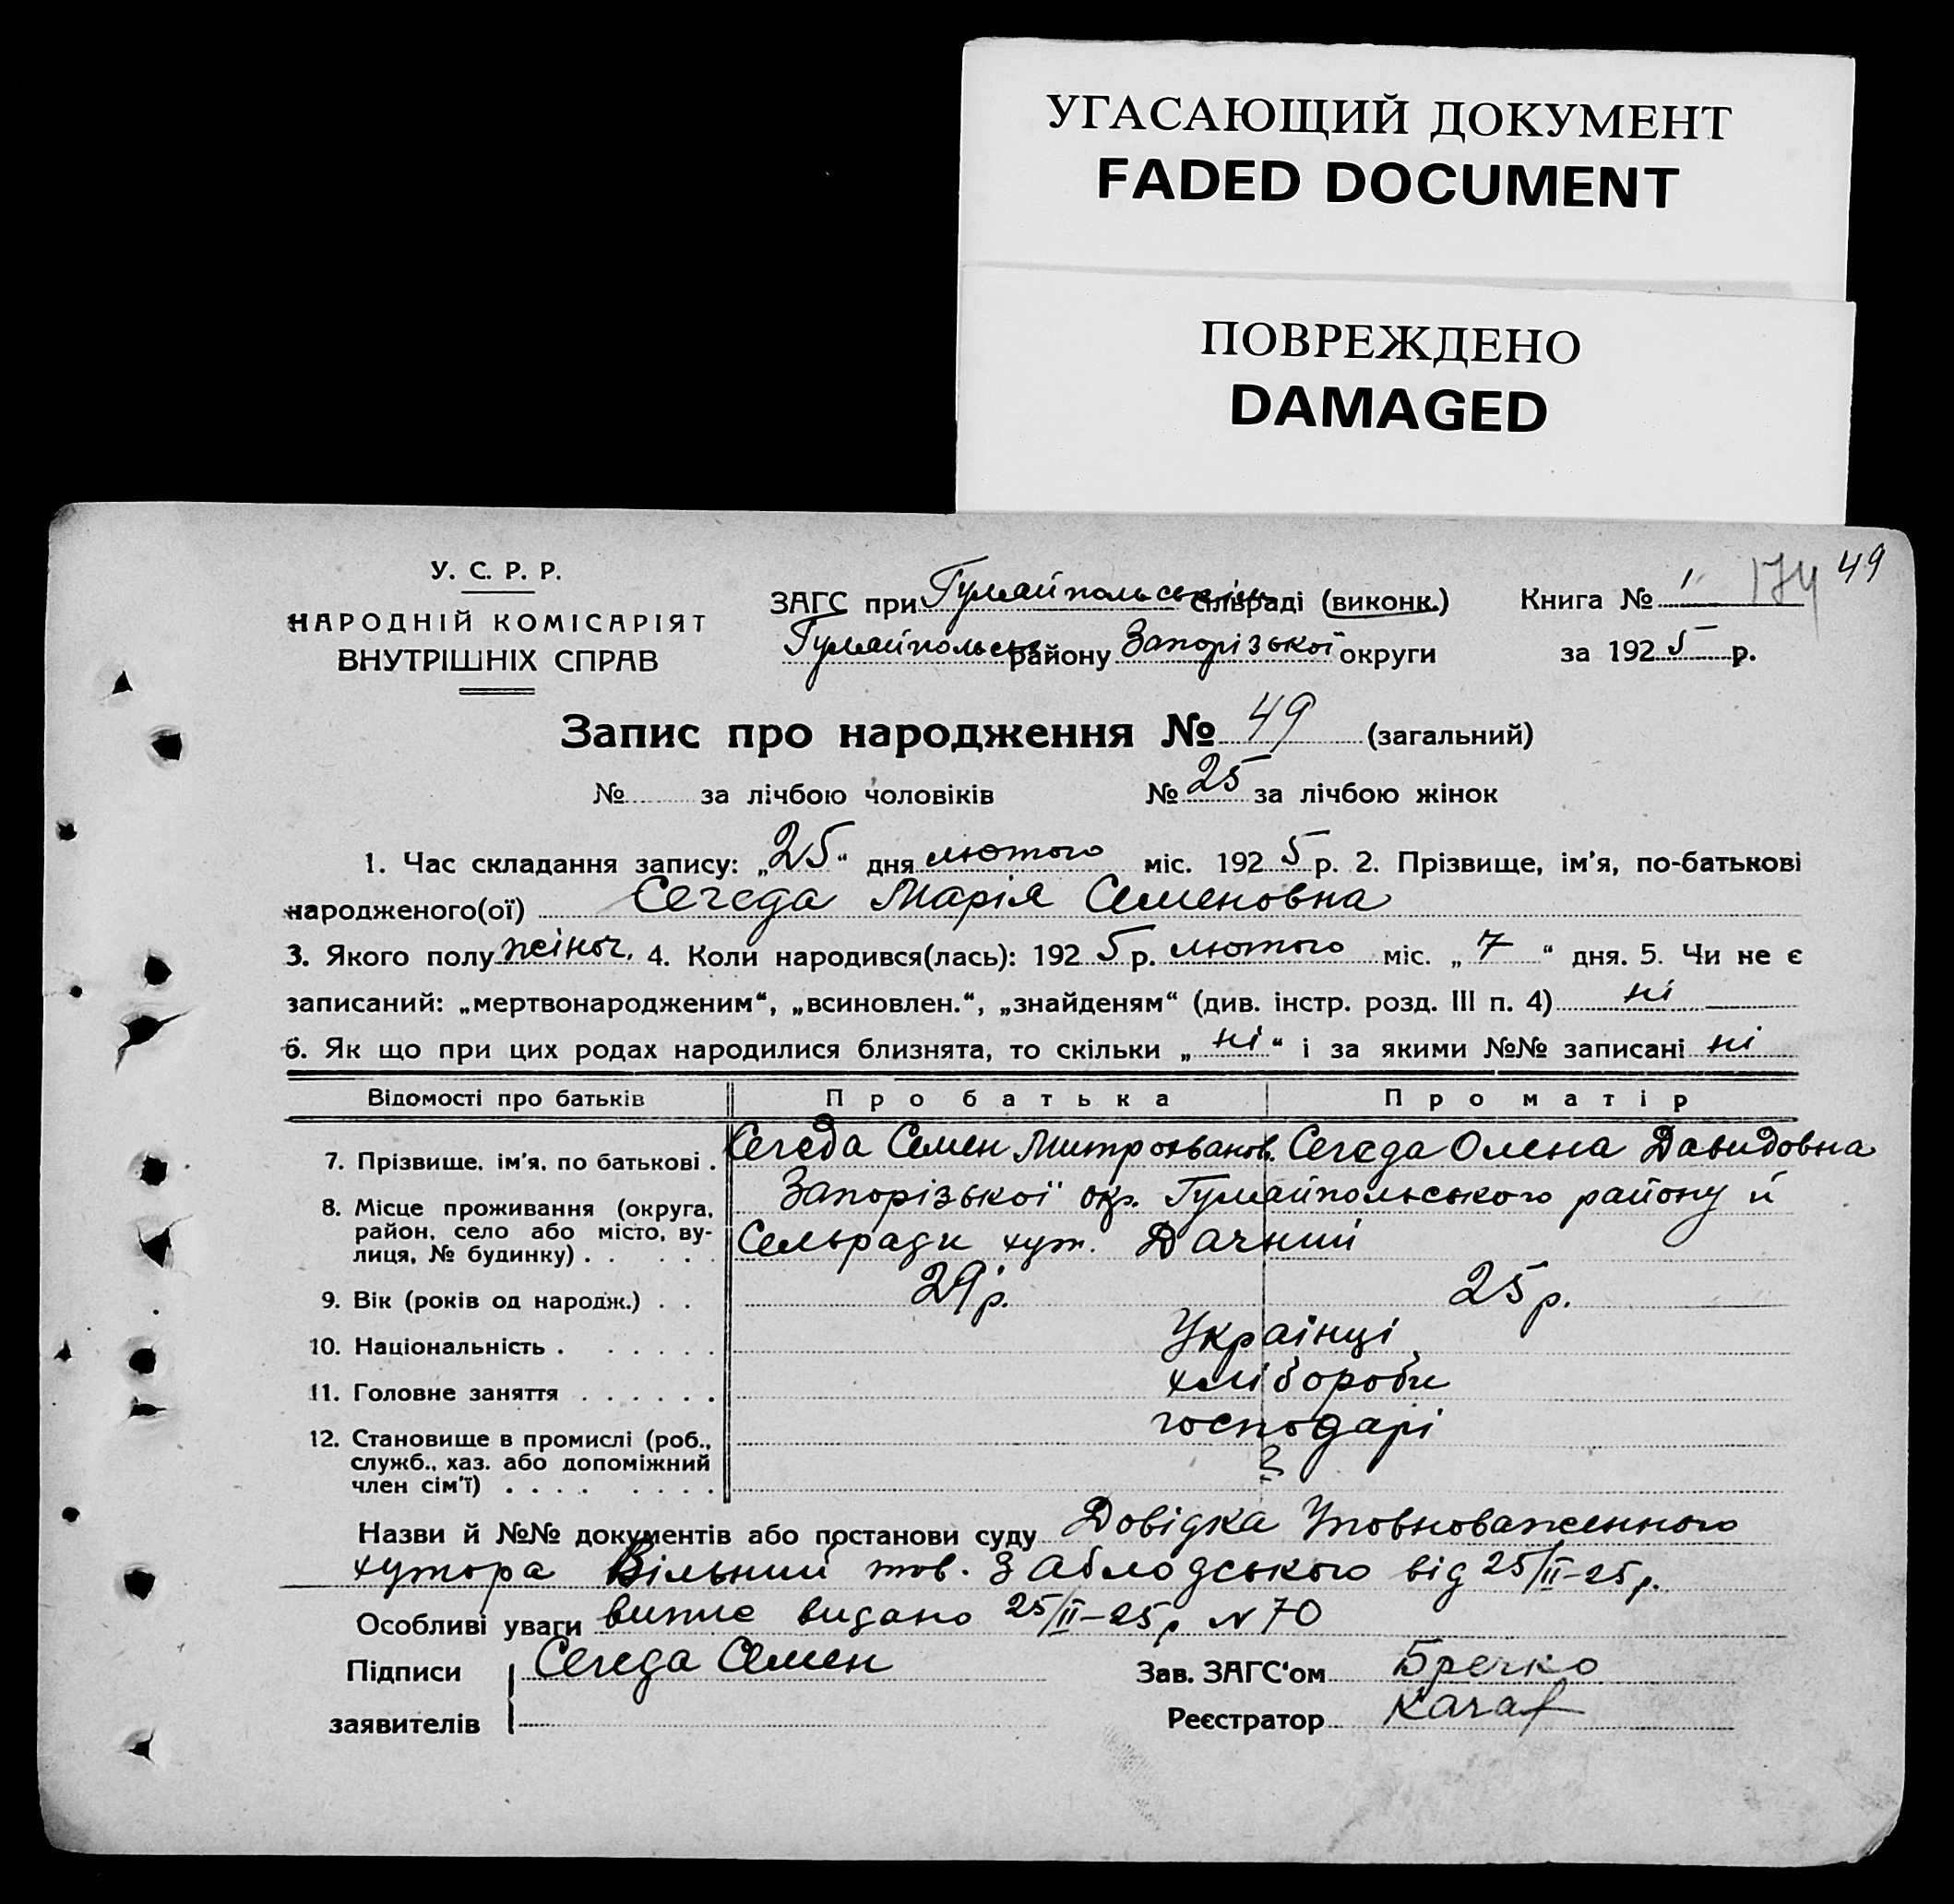 УГАСАЮЩИЙ ДОКУМЕНТ
FADED DOCUMENT
ПОВРЕЖДЕНО
DAMAGED
49
У. С. Р. Р.
НАРОДНІЙ КОМІСАРІЯТ
ВНУТРІШНІХ СПРАВ
ЗАГС при Гуляйпольськім сільраді (виконк.)
Гуляйпольськ району Запорізької округи
Книга № 1 174
за 1925 р.
Запис про народження № 49 (загальний)
№ за лічбою чоловіків № 25 за лічбою жінок
1. Час складання запису: „25“ дня лютого міс. 1925 р. 2. Прізвище, ім'я, по-батькові
народженого(ої) Сегеда Марія Семеновна
3. Якого полу жіноч. 4. Коли народився(лась): 1925 р. лютого міс. „7“ дня. 5. Чи не є
записаний: „мертвонародженим“, „всиновлен.“, „знайденям“ (див. інстр. розд. III п. 4) ні
6. Як що при цих родах народилися близнята, то скільки „ні“ і за якими №№ записані ні
Відомості про батьків Про батька Про матір
7. Прізвище, ім'я, по батькові . Сегеда Семен Митрофванов. Сегеда Олена Давидовна
8. Місце проживання (округа, Запорізької окр. Гуляйпольського району й
район, село або місто, ву- Сельради хут. Дачний
лиця, № будинку) . . . . .
9. Вік (років од народж.) . . 29 р. 25 р.
10. Національність . . . . . . Українці
11. Головне заняття . . . . . . хлібороби
12. Становище в промислі (роб., господарі
служб., хаз. або допоміжний
член сім'ї) . . . . . . . .
Назви й №№ документів або постанови суду Довідка Уповноваженного
хутора Вільний тов. Заблодського від 25/II-25 р.
Особливі уваги випис видано 25/II-25 р N 70
Підписи Сегеда Семен
заявителів
Зав. ЗАГС'ом Бречко
Реєстратор